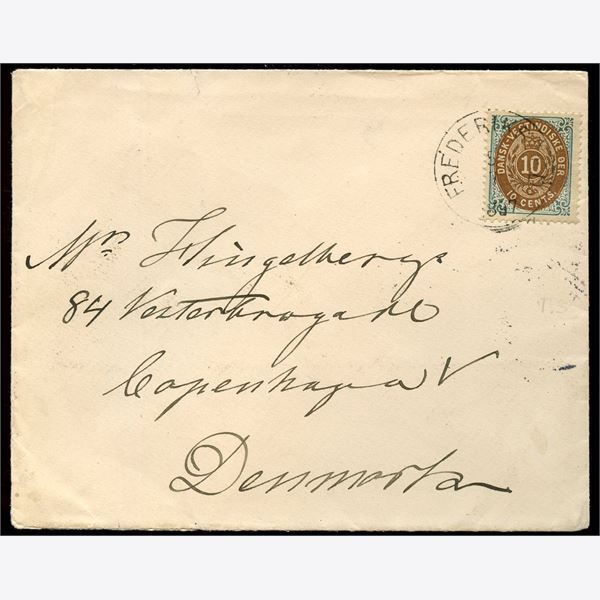 FREDERI
DANSK-VESTINDISKE ØER
10
10 CENTS.
Mrs Klingelbergs
84 Vesterbrogade
Copenhagen V
Denmark